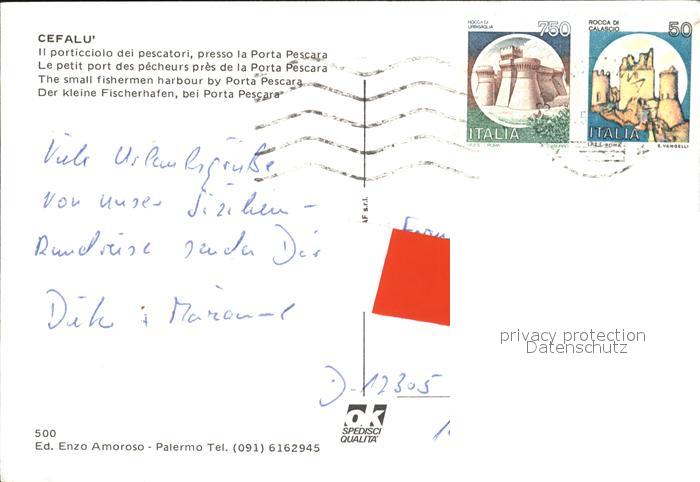 CEFALU'
Il porticciolo dei pescatori, presso la Porta Pescara
Le petit port des pêcheurs près de la Porta Pescara
The small fishermen harbour by Porta Pescara
Der kleine Fischerhafen, bei Porta Pescara
ROCCA DI
URBISAGLIA
750
ITALIA
ROCCA DI
CALASCIO
50
ITALIA
I.P.Z.S. ROMA
E. VANGELLI
Viele Urlaubsgrüße
von unser Sizilien-
Rundreise senden Dir
Dirk &
AF s.r.l.
privacy protection
Datenschutz
D-12305
ok
SPEDISCI
QUALITÀ
500
Ed. Enzo Amoroso - Palermo Tel. (091) 6162945